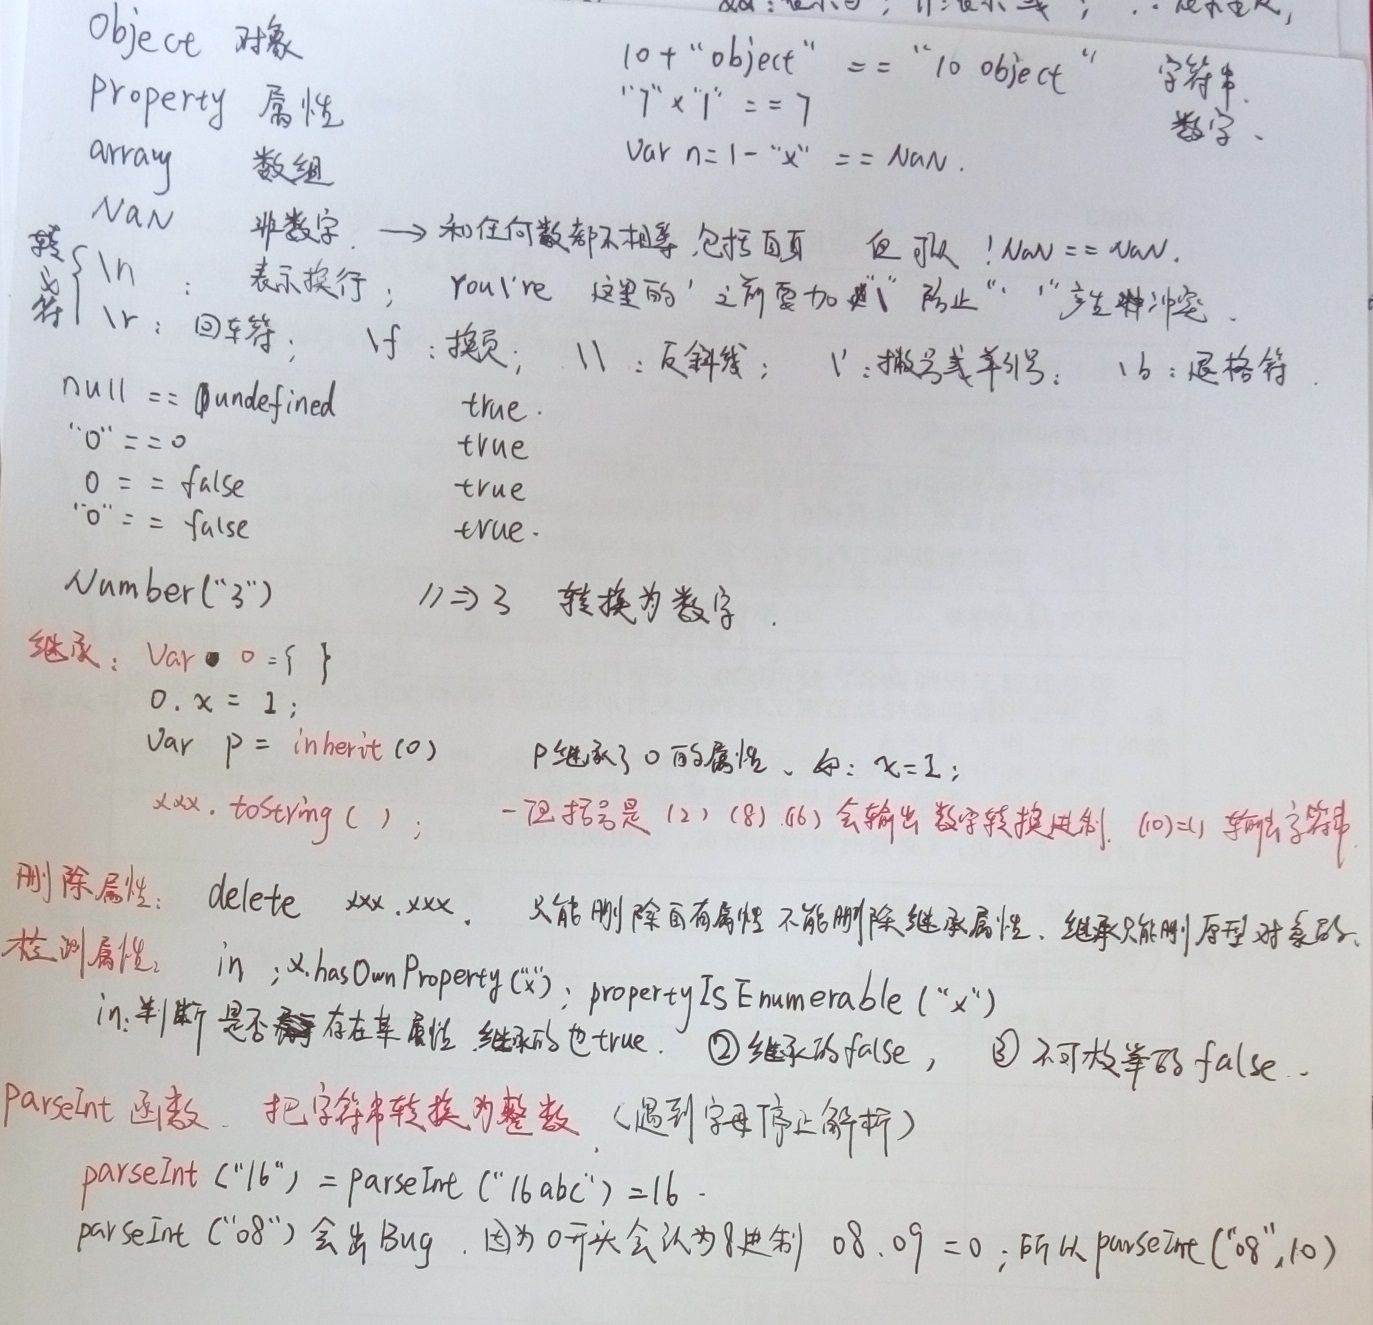 Object 对象 10 + "object" == "10 object" 字符串.
property 属性 "7" × "1" == 7 数字.
array 数组 var n = 1 - "x" == NaN.
NaN 非数字. → 和任何数都不相等,包括自身 但可以 !NaN == NaN.
转义符 { \n : 表示换行; You\'re 这里的 ' 之前要加 "\" 防止 " ' ' " 产生冲突.
\r : 回车符; \f : 换页; \\ : 反斜线; \' : 撇号或单引号; \b : 退格符.
null == undefined true.
"0" == 0 true
0 == false true
"0" == false true.
Number("3") //⇒ 3 转换为数字.
继承: Var o = { }
o.x = 1;
Var p = inherit(o) p继承了o的属性、如: x=1;
xxx.toString( ); 一旦括号是 (2) (8) (16) 会输出数字转换进制. (10)=() 输出字符串.
删除属性: delete xxx.xxx. 只能删除自有属性 不能删除继承属性、继承只能删原型对象的.
检测属性: in ; x.hasOwnProperty("x"); propertyIsEnumerable("x")
in: 判断是否存在某属性 继承的也true. ②继承的false, ③不可枚举的false..
ParseInt 函数. 把字符串转换为整数. (遇到字母停止解析)
parseInt ("16") = parseInt ("16abc") = 16.
parseInt ("08") 会出 Bug. 因为0开头会认为8进制 08、09 = 0; 所以 parseInt("08",10)